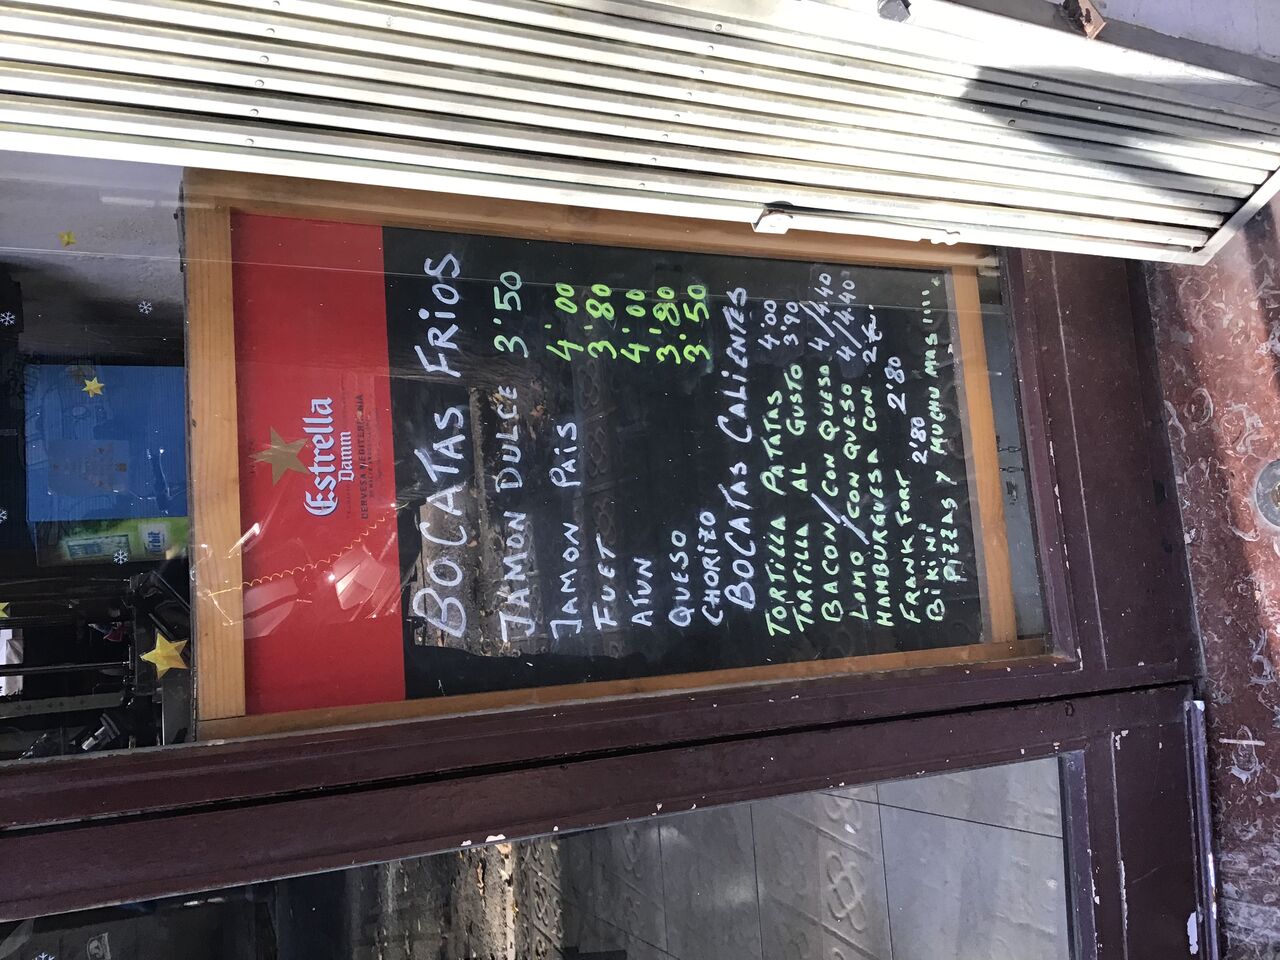 Estrella
Damm
BOCATAS FRIOS
JAMON DULCE 3'50
JAMON PAÍS 4'00
FUET 3'80
ATUN 4'00
QUESO 3'80
CHORIZO 3.50
BOCATAS CALIENTES
TORTILLA PATATAS 4'00
TORTILLA AL GUSTO 3'90
BACON/CON QUESO 4/4.40
LOMO/CON QUESO 4/4.40
HAMBURGUESA CON
FRANKFORT 2'80
BIKINI 2'80
PIZZAS Y MUCHU MAS
Orbit